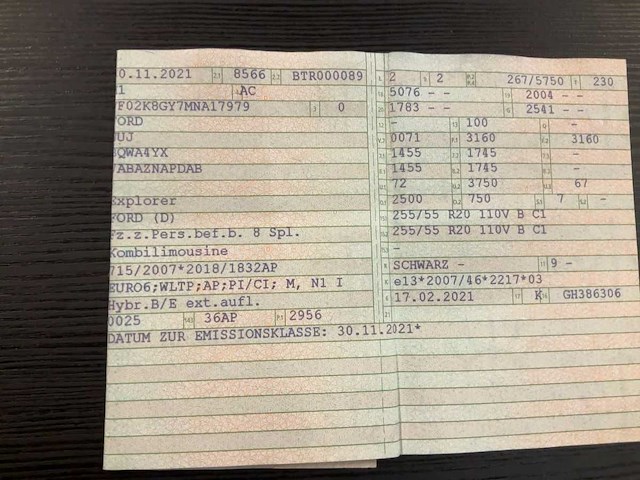 0.11.2021 8566 BTR000089
1 AC
F02K8GY7MNA17979 0
FORD
UJ
QWA4YX
ABAZNAPDAB
Explorer
FORD (D)
Fz.z.Pers.bef.b. 8 Spl.
Kombilimousine
715/2007*2018/1832AP
EURO6;WLTP;AP;PI/CI; M, N1 I
Hybr.B/E ext.aufl.
0025 36AP 2956
DATUM ZUR EMISSIONSKLASSE: 30.11.2021*
2 2 267/5750 230
5076 - - 2004 - -
1783 - - 2541 - -
- 100 -
0071 3160 3160
1455 1745 -
1455 1745 -
72 3750 67
2500 750 7 -
255/55 R20 110V B C1
255/55 R20 110V B C1
-
SCHWARZ - 9 -
e13*2007/46*2217*03
17.02.2021 K GH386306